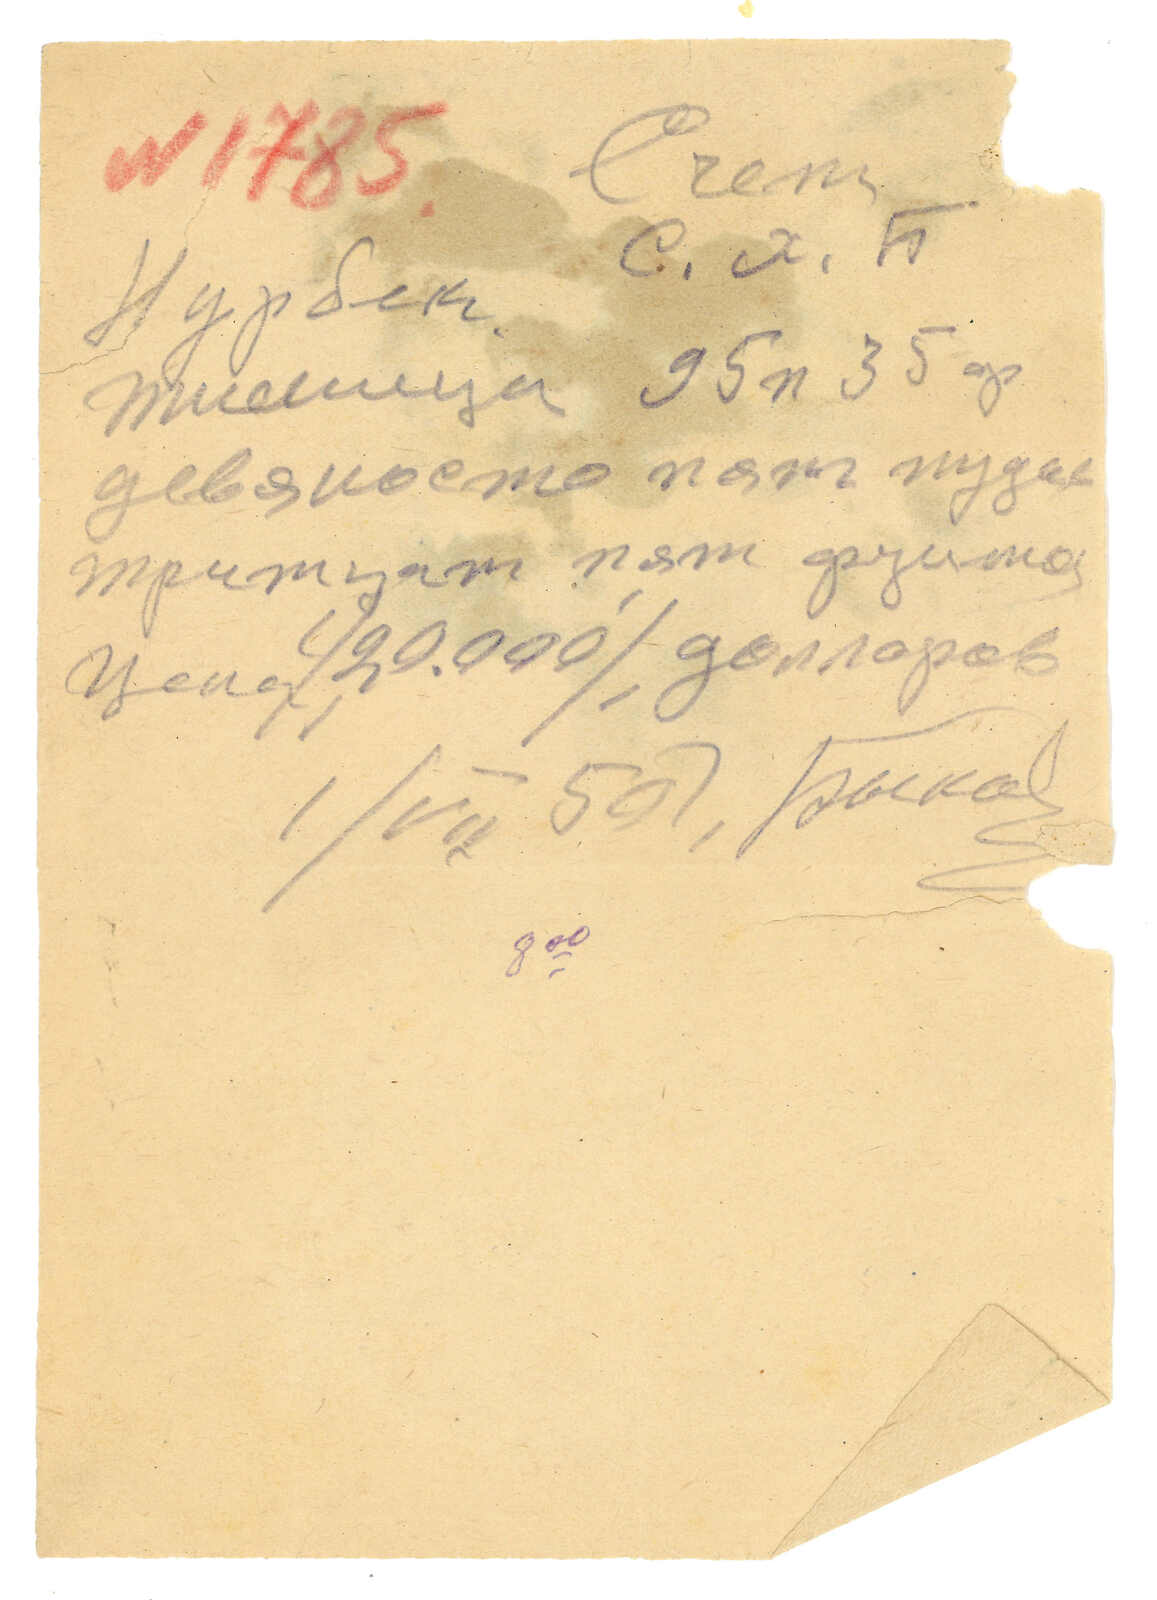 N 1785.
Счет
С. х. Б
Нурбек.
пшеница 95 п 35 ф
девяносто пят пудов
тритцат пят фунтов
Цена 420.000/ долларов
1/VII 50 г, Быков
8 00